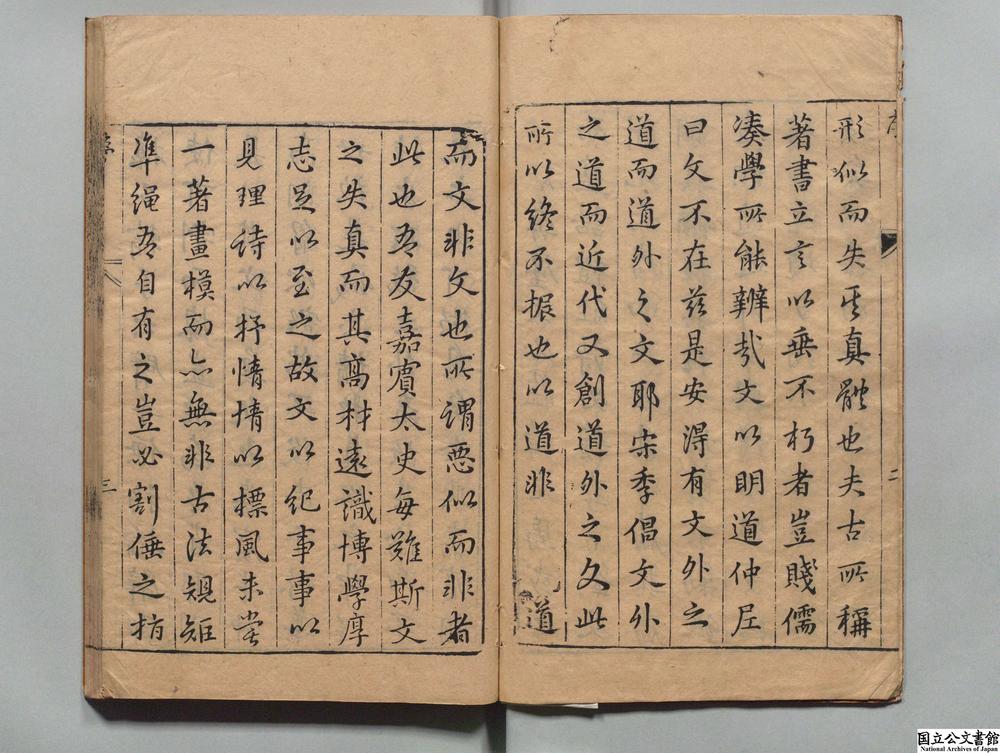 形似而失其真體也夫古所稱
著書立言以垂不朽者豈賤儒
湊學所能辨哉文以明道仲尼
曰文不在茲是安得有文外之
道而道外之文耶宋季倡文外
之道而近代又創道外之文此
所以終不振也以道非道
而文非文也所謂惡似而非者
此也吾友嘉賓太史每難斯文
之失真而其高材遠識博學厚
志足以至之故文以紀事事以
見理詩以抒情情以標風未嘗
一著畫模而亦無非古法規矩
準繩吾自有之豈必割倕之指
序
二
三
国立公文書館
National Archives of Japan